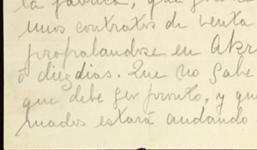 la fabrica, que
unos contratos de venta
propalandose en Akr
o diez dias. Que no sabe
que debe ser pronto, y que
mados estará andando